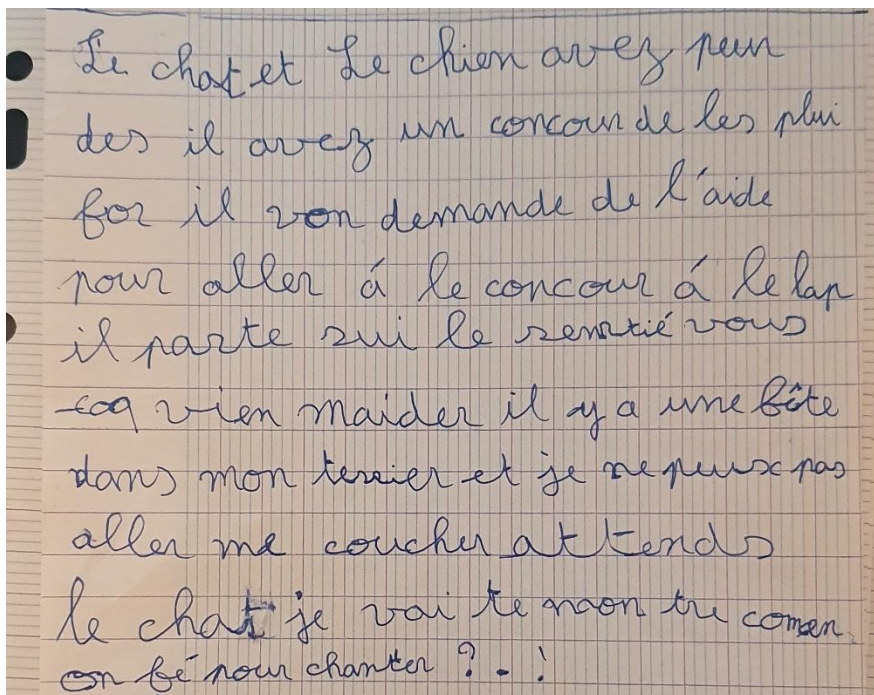 Le chat et Le chien avez peur
des il avez un concour de les plui
for il von demande de l'aide
pour aller á le concour á le lap
il parte sui le sentié vous
coq vien maider il y a une bête
dans mon terrier et je ne peux pas
aller me coucher attends
le chat je vai te mon tre comen
on fé pour chanter ? . !